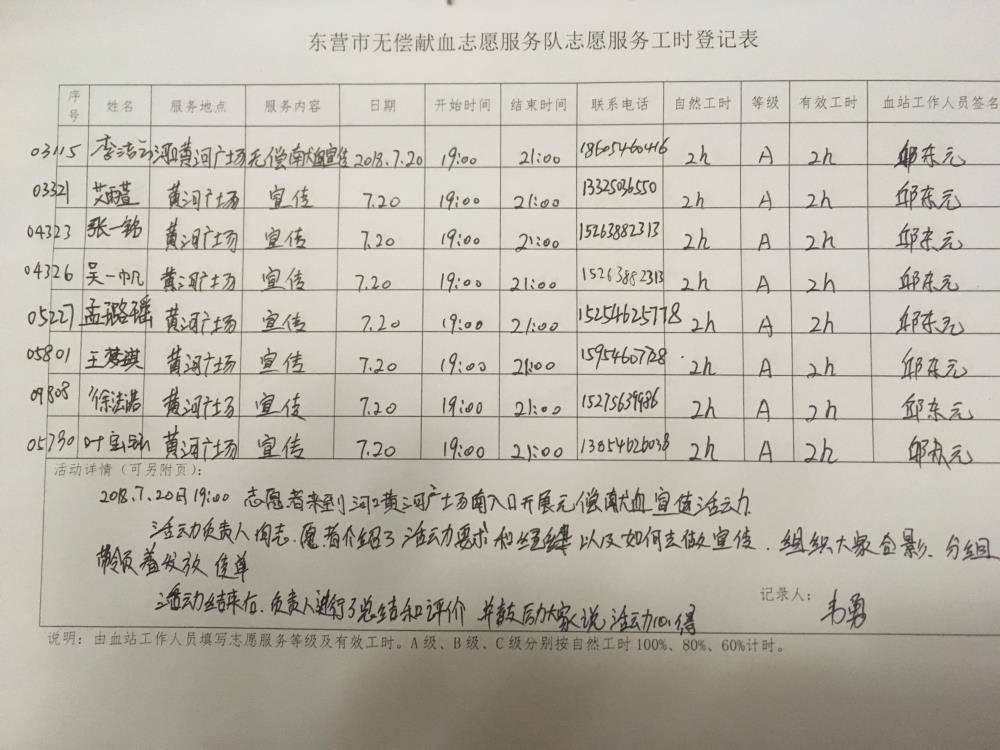 东营市无偿献血志愿服务队志愿服务工时登记表
序号 姓名 服务地点 服务内容 日期 开始时间 结束时间 联系电话 自然工时 等级 有效工时 血站工作人员签名
03115 李洁云 河口黄河广场 无偿献血宣传 2018.7.20 19:00 21:00 18605460416 2h A 2h 邱东元
03321 艾雨萱 黄河广场 宣传 7.20 19:00 21:00 13325036550 2h A 2h 邱东元
04323 张一铭 黄河广场 宣传 7.20 19:00 21:00 15263882313 2h A 2h 邱东元
04326 吴一帆 黄河广场 宣传 7.20 19:00 21:00 15263882313 2h A 2h 邱东元
05227 孟璐瑶 黄河广场 宣传 7.20 19:00 21:00 15254625778 2h A 2h 邱东元
05801 王梦琪 黄河广场 宣传 7.20 19:00 21:00 15954607728 2h A 2h 邱东元
09808 徐法浩 黄河广场 宣传 7.20 19:00 21:00 15275639986 2h A 2h 邱东元
05790 叶宝 黄河广场 宣传 7.20 19:00 21:00 13854626038 2h A 2h 邱东元
活动详情（可另附页）：
2018.7.20日19:00 志愿者来到河口黄河广场南入口开展无偿献血宣传活动.
活动负责人向志愿者介绍了活动要求和 以及如何去做宣传.组织大家合影.分组
带领着发放传单
活动结束后.负责人进行了总结和评价 并鼓励大家说活动心得
记录人： 韦勇
说明：由血站工作人员填写志愿服务等级及有效工时。A 级、B 级、C 级分别按自然工时 100%、80%、60%计时。